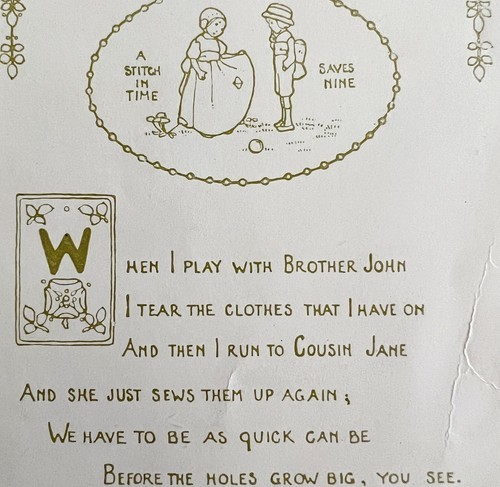 A
STITCH
IN
TIME
SAVES
NINE
WHEN I PLAY WITH BROTHER JOHN
I TEAR THE CLOTHES THAT I HAVE ON
AND THEN I RUN TO COUSIN JANE
AND SHE JUST SEWS THEM UP AGAIN;
WE HAVE TO BE AS QUICK CAN BE
BEFORE THE HOLES GROW BIG, YOU SEE.